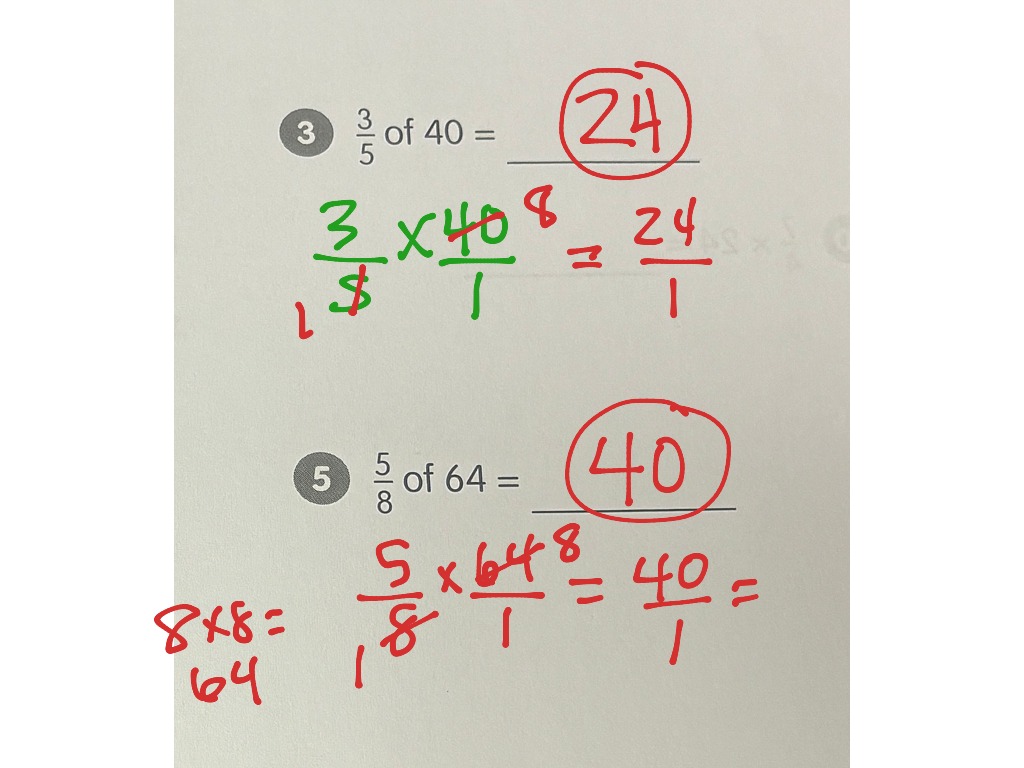 3 3/5 of 40 = 24
3/5 × 40/1 = 24/1
1 8
5 5/8 of 64 = 40
5/8 × 64/1 = 40/1 =
1 8
8×8=
64